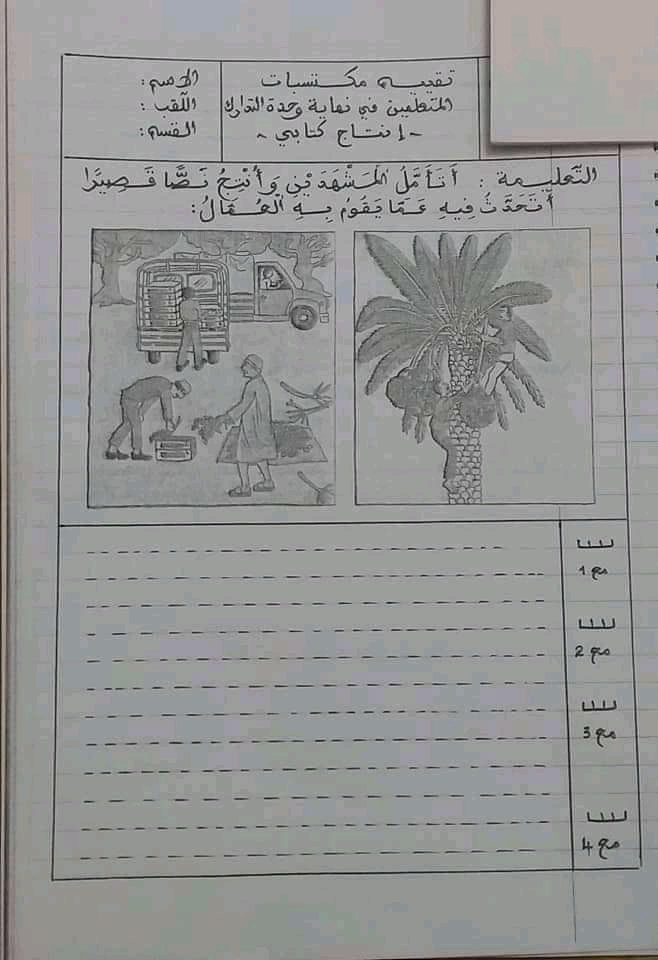 تقييم مكتسبات
المتعلمين في نهاية وحدة التدارك
- إنتاج كتابي -
الاسم:
اللقب:
القسم:
التعليمة: أَتَأَمَّلُ المَشْهَدَيْنِ وَأُنْتِجُ نَصًّا قَصِيرًا
أَتَحَدَّثُ فِيهِ عَمَّا يَقُومُ بِهِ الْعُمَّالُ:
مع 1
مع 2
مع 3
مع 4